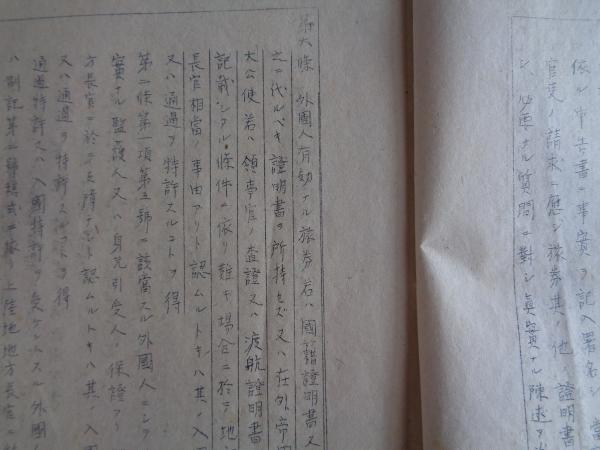 依ル申告書ニ事實ヲ記入署名シ 當
官吏ノ請求ニ應シ旅券其ノ他ノ證明
シ、必要ナル質問ニ對シ眞實ナル陳述ヲ
第六條 外國人有効ナル旅券若ハ國籍證明書又
之ニ代ルベキ證明書ヲ所持セズ又ハ在外帝國
大公使若ハ領事官ノ査證又ハ渡航證明書
記載シアル條件ニ依リ難キ場合ニ於テ地
長官相當ノ事由アリト認ムルトキハ其ノ入
又ハ通過ヲ特許スルコトヲ得
第二條第一項第五號ニ該當スル外國人ニシテ
實ナル監護人又ハ身元引受人ノ保證アリ
方長官ニ於テ支障ナシト認ムルトキハ其ノ入
又ハ通過ヲ特許スルコトヲ得
通過特許又ハ入國特許ヲ受ケントスル外國
ハ別記第二號樣式ニ依リ上陸地地方長官ニ